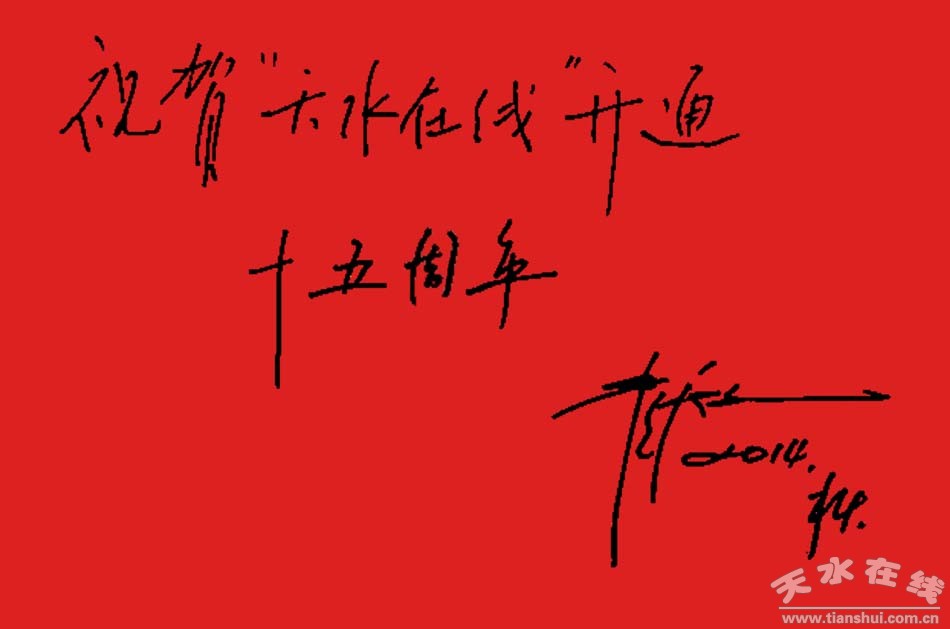 祝贺“天水在线”开通
十五周年
2014.
天水在线
www.tianshui.com.cn